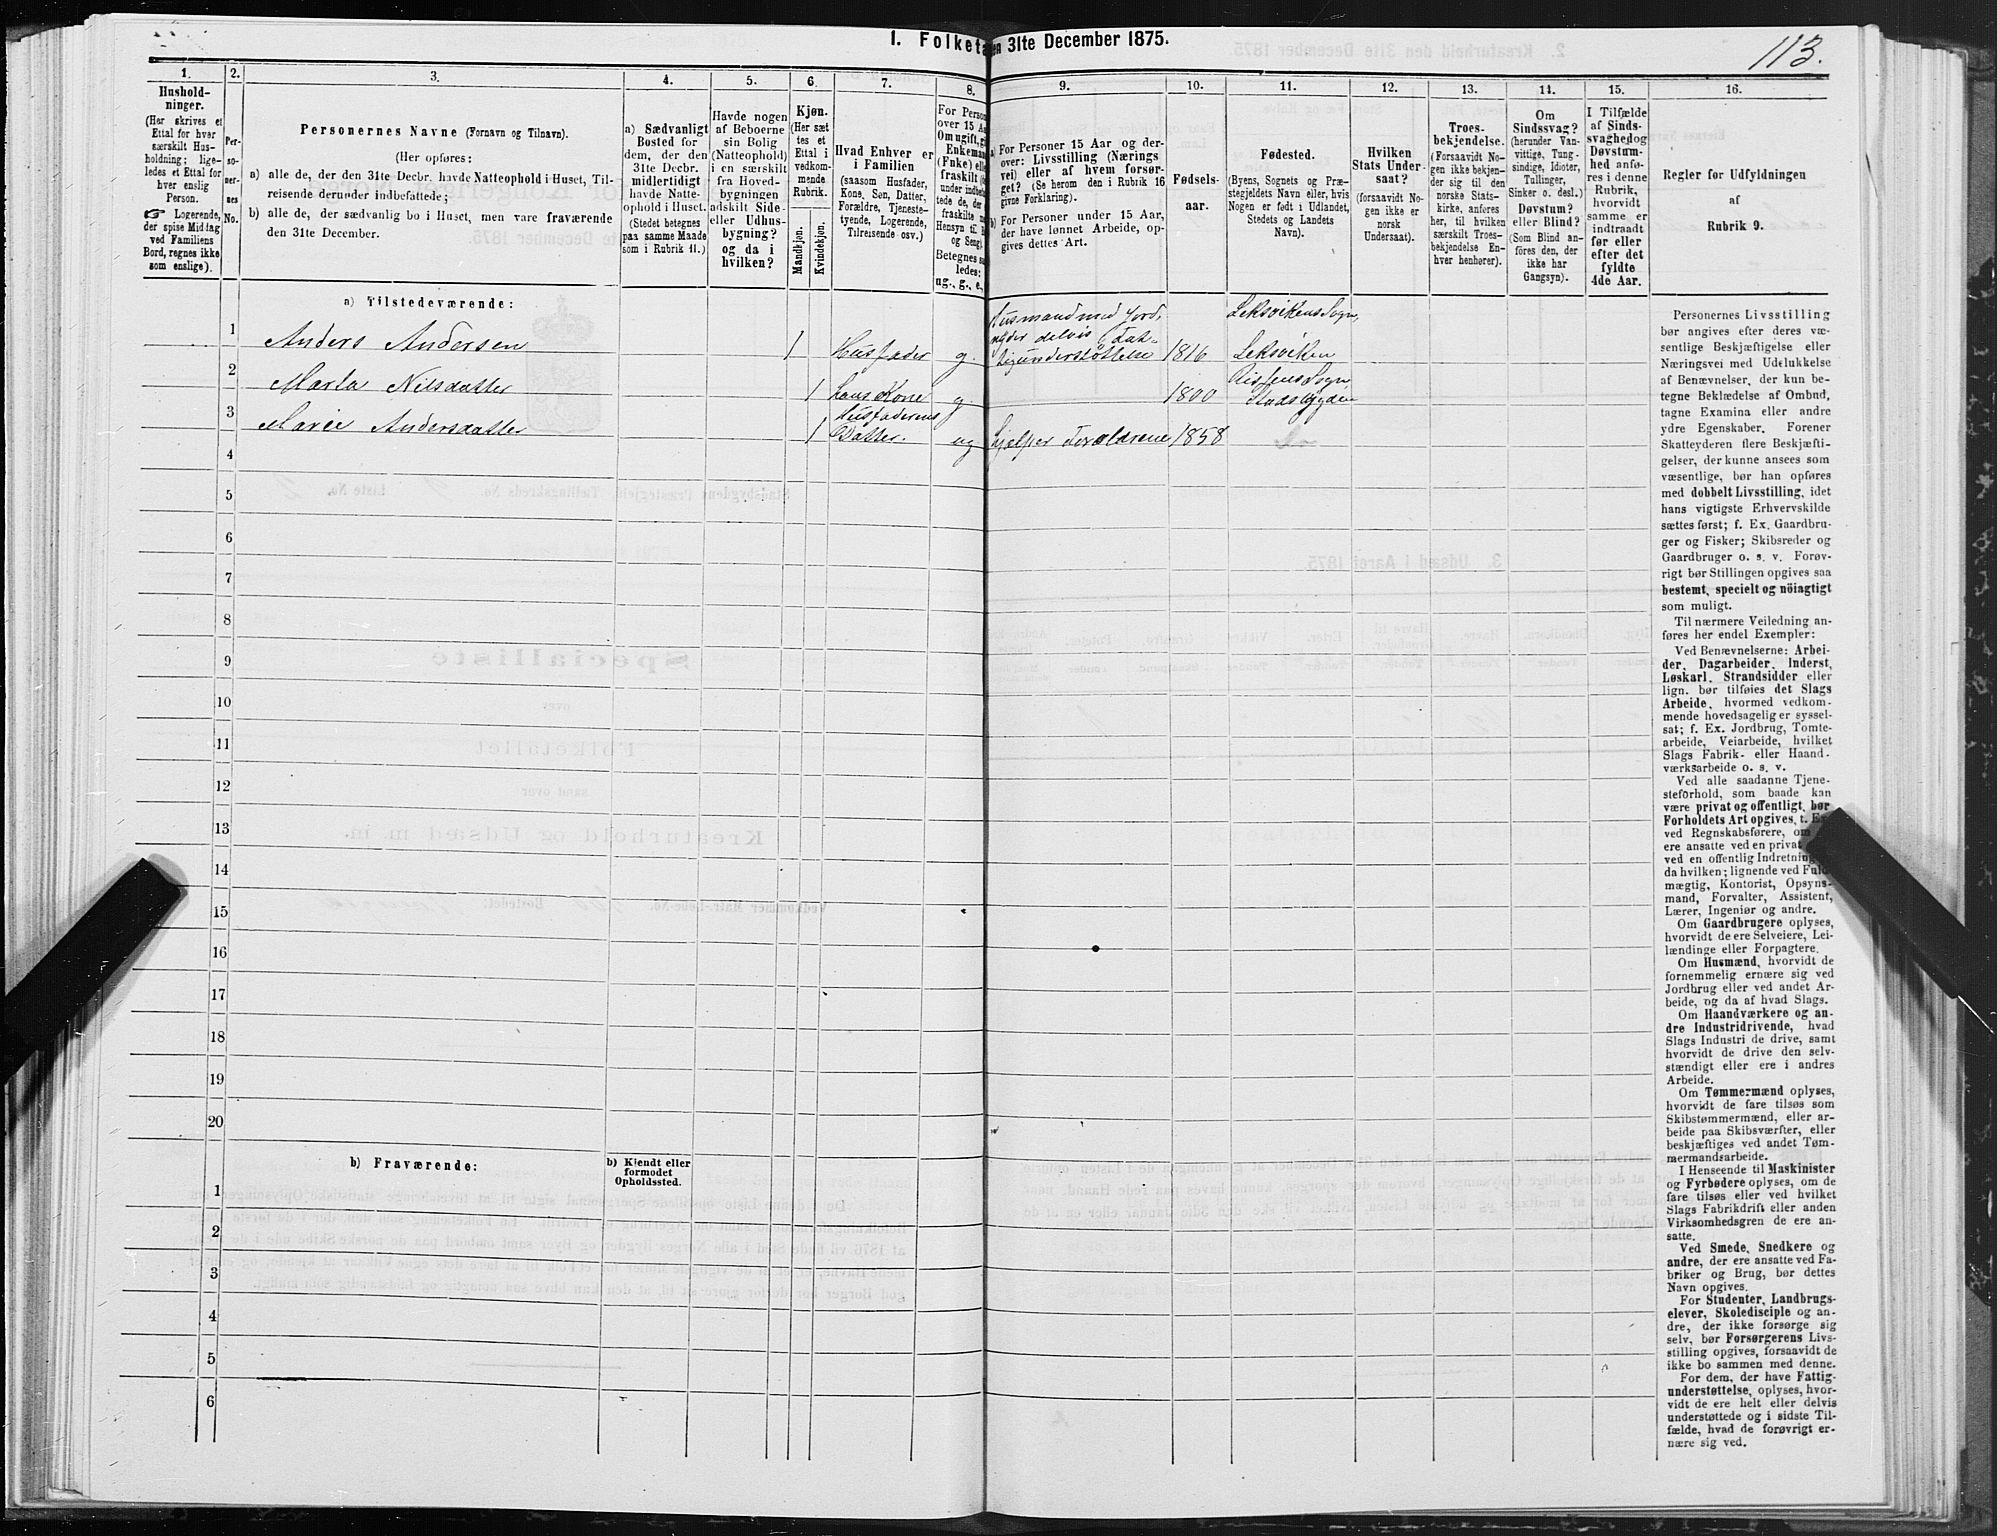 113.
1. Folketa en 31te December 1875.
1.
2.
3.
4.
5.
6.
7.
8.
9.
10.
11.
12.
13.
14.
15.
16.
Hushold-
ninger.
(Her skrives et
Ettal for hver
særskilt Hus-
holdning; lige-
ledes et Ettal for
hver enslig
Person.
☞ Logerende,
der spise Middag
ved Familiens
Bord, regnes ikke
som enslige).
Per-
so-
ner-
nes
No.
Personernes Navne (Fornavn og Tilnavn).
(Her opføres:
a) alle de, der den 31te Decbr. havde Natteophold i Huset, Til-
reisende derunder indbefattede;
b) alle de, der sædvanlig bo i Huset, men vare fraværende
den 31te December.
a) Sædvanligt
Bosted for
dem, der den
31te Decbr.
midlertidigt
havde Natte-
ophold i Huset.
(Stedet betegnes
paa samme Maade
som i Rubrik 11.)
Havde nogen
af Beboerne
sin Bolig
(Natteophold)
i en særskilt
fra Hoved-
bygningen
adskilt Side-
eller Udhus-
bygning?
og da i
hvilken?
Kjøn.
(Her sæt
tes et
Ettal i
vedkom-
mende
Rubrik.
Mandkjøn.
Kvindekjøn.
Hvad Enhver er
i Familien
(saasom Husfader,
Kone, Søn, Datter,
Forældre, Tjeneste-
tyende, Logerende,
Tilreisende osv.).
For Perso
over 15 Aa
Om ugift, gi
Enkeman
(Fnke) elle
fraskilt (
under indbe
tede de, d
fraskilte
Hensyn til
og Seng).
Betegnes sa
ledes:
ug., g., e.,
a) For Personer 15 Aar og der-
over: Livsstilling (Nærings
vei) eller af hvem forsør-
get? (Se herom den i Rubrik 16
givne Forklaring).
b) For Personer under 15 Aar,
der have lønnet Arbeide, op-
gives dettes Art.
Fødsels-
aar.
Fødested.
(Byens, Sognets og Præ-
stegjeldets Navn eller, hvis
Nogen er født i Udlandet,
Stedets og Landets
Navn).
Hvilken
Stats Under-
saat?
(forsaavidt No-
gen ikke er
norsk
Undersaat).
Troes-
bekjendelse.
(Forsaavidt No-
gen ikke bekjen-
der sig til den
norske Stats-
kirke, anføres
her, til hvilken
særskilt Troes-
bekjendelse En-
hver henhører).
Om
Sindssvag?
(herunder Van-
vittige, Tung-
sindige, Idioter,
Tullinger,
Sinker o. desl.)
Døvstum?
eller Blind?
(Som Blind an-
føres den, der
ikke har
Gangsyn).
I Tilfælde
af Sinds-
svaghed og
Døvstum-
hed anfø-
res i denne
Rubrik,
hvorvidt
samme er
indtraadt
før eller
efter det
fyldte
4de Aar.
Regler for Udfyldningen
af
Rubrik 9.
a) Tilstedeværende:
1 Anders Andersen 1 Husfader g. Husmand med Jord, nyder delvis Fat- tigunderstøttelse 1816 Leksvikens Sogn, Leksviken
2 Marta Nilsdatter 1 hans Kone g. 1800 Rissens Sogn, Stadsbygden
3 Marie Andersdatter 1 Husfaderens Datter. ug hjelper Forældrene 1858 Do
4
5
6
7
8
9
10
11
12
13
14
15
16
17
18
19
20
b) Fraværende:
b) Kjendt eller
formodet
Opholdssted.
1
2
3
4
5
6
Personernes Livsstilling
bør angives efter deres væ-
sentlige Beskjæftigelse eller
Næringsvei med Udelukkelse
af Benævnelser, der kun be-
tegne Beklædelse af Ombud,
tagne Examina eller andre
ydre Egenskaber. Forener
Skatteyderen flere Beskjæfti-
gelser, der kunne ansees som
væsentlige, bør han opføres
med dobbelt Livsstilling, idet
hans vigtigste Erhvervskilde
sættes først; f. Ex. Gaardbru-
ger og Fisker; Skibsreder og
Gaardbruger o. s. v. Forøv-
rigt bør Stillingen opgives saa
bestemt, specielt og nöiagtigt
som muligt.
Til nærmere Veiledning an-
føres her endel Exempler:
Ved Benævnelserne: Arbei-
der, Dagarbeider, Inderst,
Løskarl, Strandsidder eller
lign. bør tilføies det Slags
Arbeide, hvormed vedkom-
mende hovedsagelig er syssel-
sat; f. Ex. Jordbrug, Tomte-
arbeide, Veiarbeide, hvilket
Slags Fabrik- eller Haand-
værksarbeide o. s. v.
Ved alle saadanne Tjene-
steforhold, som baade kan
være privat og offentligt, bør
Forholdets Art opgives, f. Ex.
ved Regnskabsførere, om
ere ansatte ved en privat
ved en offentlig Indretning
da hvilken; lignende ved Fuld-
mægtig, Kontorist, Opsyns-
mand, Forvalter, Assistent,
Lærer, Ingeniør og andre.
Om Gaardbrugere oplyses,
hvorvidt de ere Selveiere, Lei-
lændinge eller Forpagtere.
Om Husmænd, hvorvidt de
fornemmelig ernære sig ved
Jordbrug eller ved andet Ar-
beide, og da af hvad Slags.
Om Haandværkere og an-
dre Industridrivende, hvad
Slags Industri de drive, samt
hvorvidt de drive den selv-
stændigt eller ere i andres
Arbeide.
Om Tømmermænd oplyses,
hvorvidt de fare tilsøs som
Skibstømmermænd, eller ar-
beide paa Skibsværfter, eller
beskjæftiges ved andet Tøm-
mermandsarbeide.
I Henseende til Maskinister
og Fyrbødere oplyses, om de
fare tilsøs eller ved hvilket
Slags Fabrikdrift eller anden
Virksomhedsgren de ere an-
satte.
Ved Smede, Snedkere og
andre, der ere ansatte ved Fa-
briker og Brug, bør dettes
Navn opgives.
For Studenter, Landbrugs-
elever, Skoledisciple og an-
dre, der ikke forsørge sig
selv, bør Forsørgerens Livs-
stilling opgives, forsaavidt de
ikke bo sammen med denne.
For dem, der have Fattig-
understøttelse, oplyses, hvor-
vidt de ere helt eller delvis
understøttede og i sidste Til-
fælde, hvad de forøvrigt er-
nære sig ved.